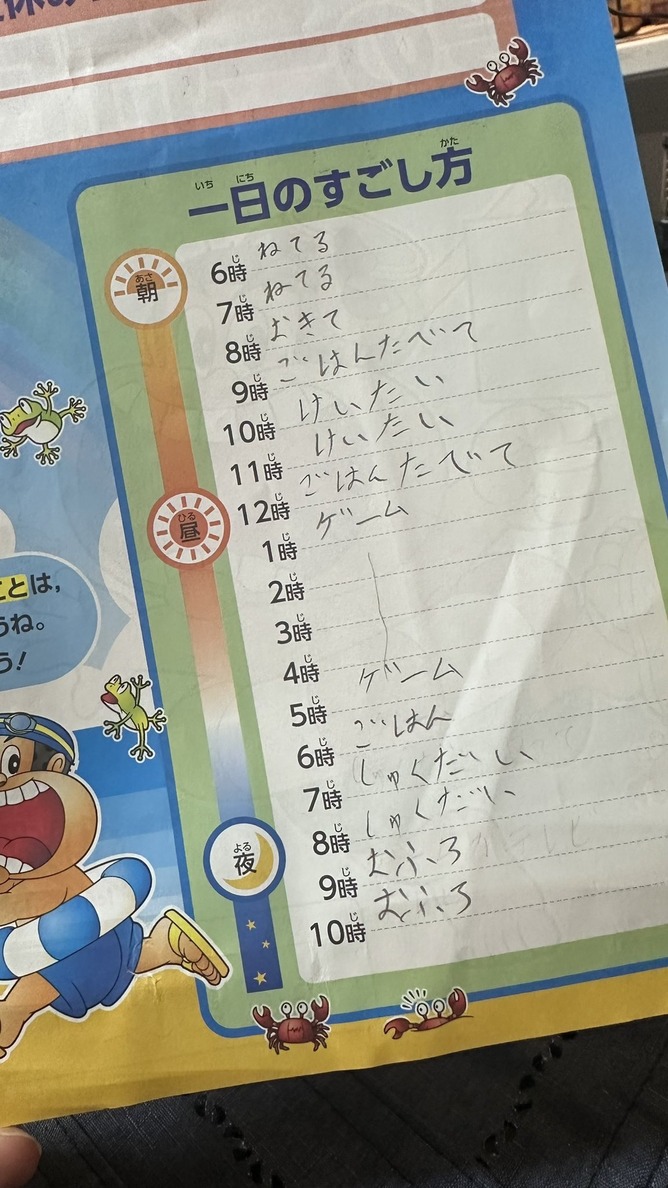 いちにち かた
一日のすごし方
あさ
朝
6時 ねてる
7時 ねてる
8時 おきて
9時 ごはんたべて
10時 けいたい
11時 けいたい
ひる
昼
12時 ごはんたべて
1時 ゲーム
2時
3時
4時 ゲーム
5時 ごはん
6時 しゅくだい
7時 しゅくだい
よる
夜
8時 おふろ
9時 おふろ
10時
ことは、
うね。
う!